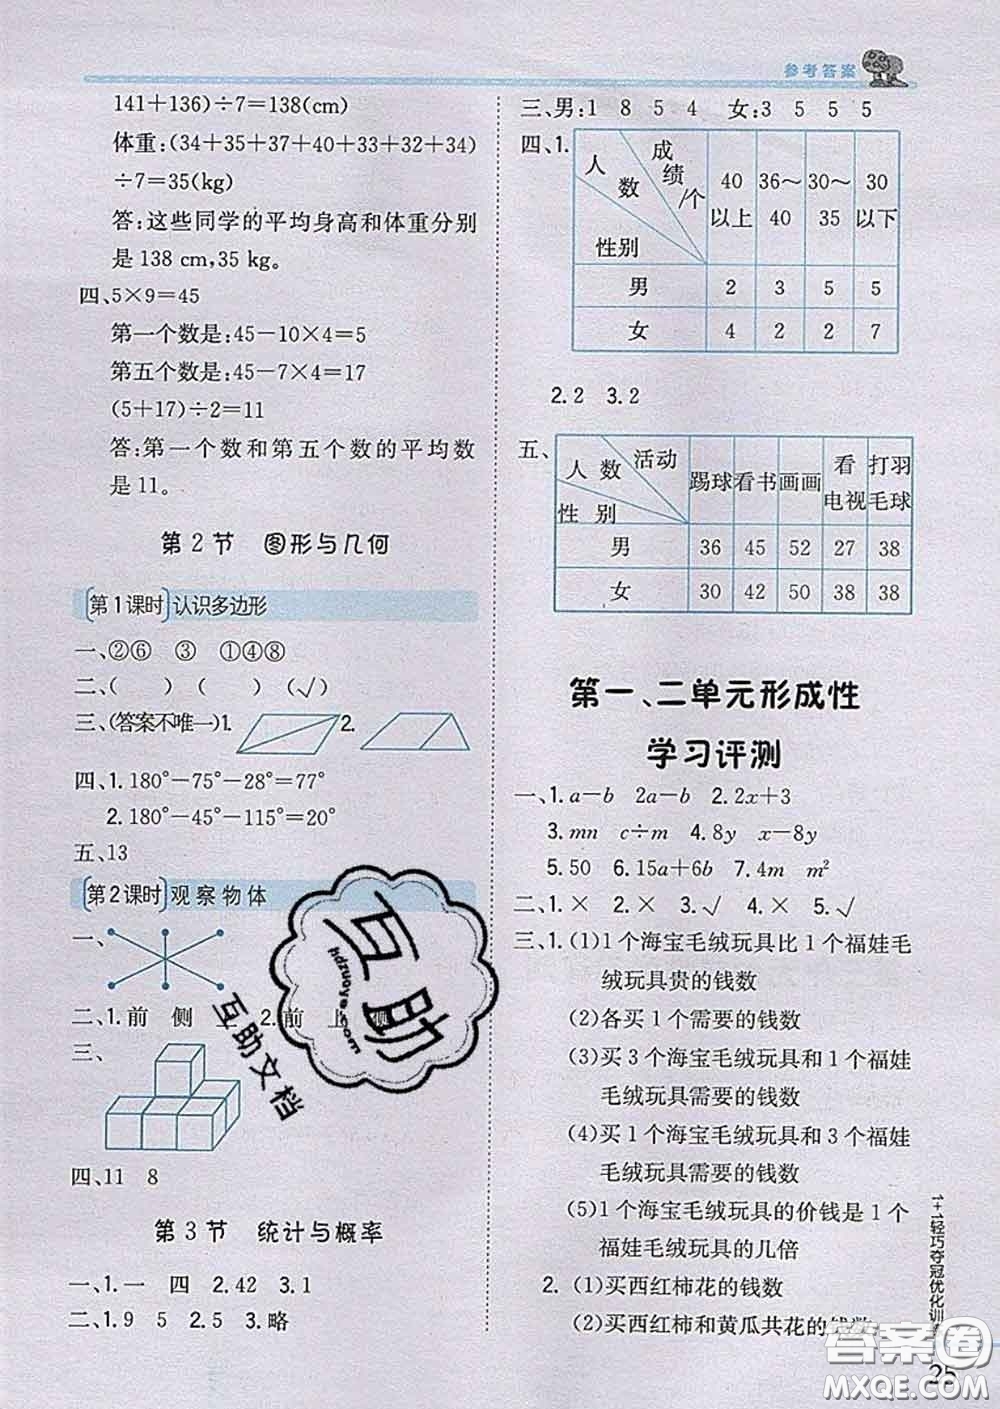 参考答案
141+136)÷7=138(cm)
体重:(34+35+37+40+33+32+34)
÷7=35(kg)
答:这些同学的平均身高和体重分别
是138 cm,35 kg。
四、5×9=45
第一个数是:45-10×4=5
第五个数是:45-7×4=17
(5+17)÷2=11
答:第一个数和第五个数的平均数
是11。
第2节 图形与几何
第1课时 认识多边形
一、②⑥ ③ ①④⑧
二、( ) ( ) (√)
三、(答案不唯一)1. 2.
四、1. 180°-75°-28°=77°
2. 180°-45°-115°=20°
五、13
第2课时 观察物体
一、
二、1.前 侧 上 2.前 上 侧
三、
四、11 8
第3节 统计与概率
一、1.一 四 2.42 3.1
二、1.9 5 2.5 3.略
三、男:1 8 5 4 女:3 5 5 5
四、1.
人数 成绩/个 性别 40以上 36～40 30～35 30以下
男 2 3 5 5
女 4 2 2 7
2.2 3.2
五、
人数 活动 性别 踢球 看书 画画 看电视 打羽毛球
男 36 45 52 27 38
女 30 42 50 38 38
第一、二单元形成性
学习评测
一、1. a-b 2a-b 2. 2x+3
3. mn c÷m 4. 8y x-8y
5. 50 6. 15a+6b 7. m m²
二、1.× 2.× 3.√ 4.× 5.√
三、1.(1)1个海宝毛绒玩具比1个福娃毛
绒玩具贵的钱数
(2)各买1个需要的钱数
(3)买3个海宝毛绒玩具和1个福娃
毛绒玩具需要的钱数
(4)买1个海宝毛绒玩具和3个福娃
毛绒玩具需要的钱数
(5)1个海宝毛绒玩具的价钱是1个
福娃毛绒玩具的几倍
2.(1)买西红柿花的钱数
(2)买西红柿和黄瓜共花的钱数
1+1轻巧夺冠优化训
25
互助
hdzuoye.com
互助文档
答案圈
MXQE.COM